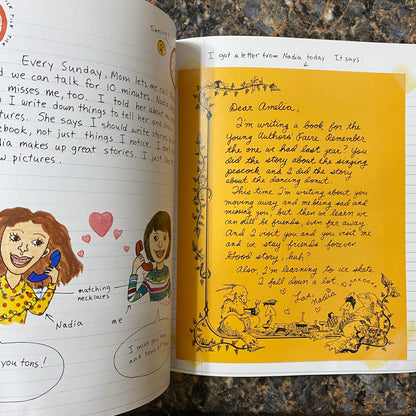 Every Sunday, Mom lets me call
we can talk for 10 minutes. Nadia
misses me, too. I told her about my
I write down things to tell her and
tures. She says I should write stories in
ebook, not just things I notice. I
dia makes up great stories. I just
w pictures.
matching
necklaces
Nadia
me
you tons!
I miss you
and tons
I got a letter from Nadia today. It says:
Dear Amelia,
I'm writing a book for the
Young Authors' Faire. Remember
the one we had last year? You
did the story about the singing
peacock and I did the story
about the dancing donut.
This time I'm writing about you
moving away and me being sad and
missing you, but then we learn we
can still be friends, even far away.
And I visit you and you visit me
and we stay friends forever.
Good story, huh?
Also I'm learning to ice skate.
I fall down a lot.
Love,
Nadia